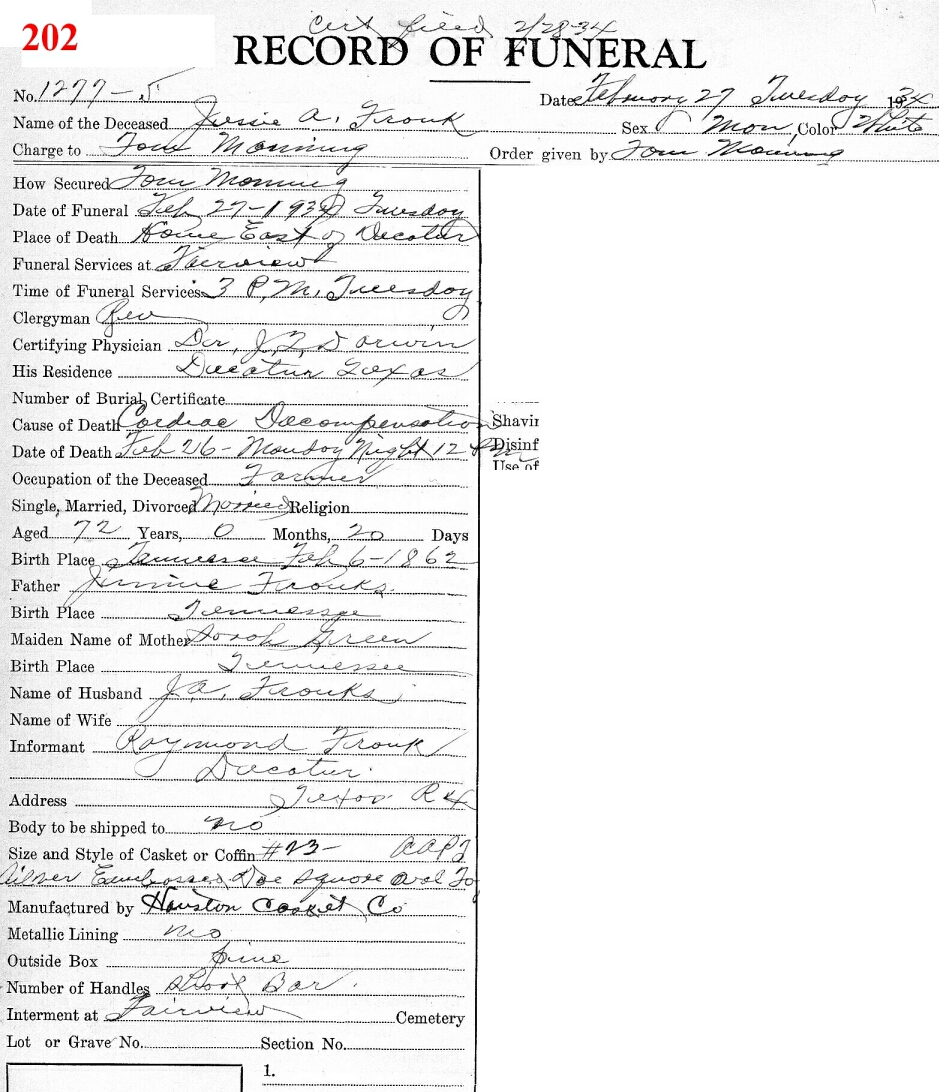 202
Cert filed 2/28-34
RECORD OF FUNERAL
No. 1277-5 Date February 27 Tuesday 1934
Name of the Deceased Jessie A. Fronk Sex Man Color White
Charge to Tom Manning Order given by Tom Manning
How Secured Tom Manning
Date of Funeral Feb 27-1934 Tuesday
Place of Death Home East of Decatur
Funeral Services at Fairview
Time of Funeral Services 3 P.M. Tuesday
Clergyman Rev
Certifying Physician Dr. J.J. Darwin
His Residence Decatur Texas
Number of Burial Certificate
Cause of Death Cardiac Decompensation Shavin
Date of Death Feb 26- Monday Night 12 PM Disinf
Use of
Occupation of the Deceased Farmer
Single, Married, Divorced Married Religion
Aged 72 Years, 0 Months, 20 Days
Birth Place Tennessee Feb 6-1862
Father Jimmie Fronks
Birth Place Tennessee
Maiden Name of Mother Sarah Green
Birth Place Tennessee
Name of Husband J.A. Fronks
Name of Wife
Informant Raymond Fronk
Decatur
Address Texas R 4
Body to be shipped to no
Size and Style of Casket or Coffin #23-
Silver Embossed Doe Square Oval To
Manufactured by Houston Casket Co
Metallic Lining no
Outside Box pine
Number of Handles Bar
Interment at Fairview Cemetery
Lot or Grave No. Section No.
1.